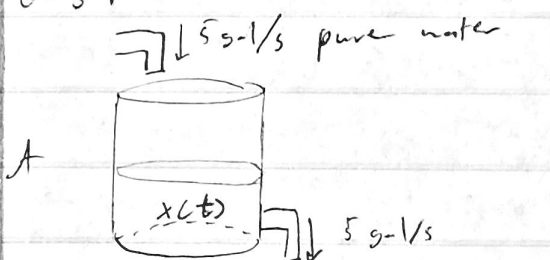 5 gal/s pure water
A
x(t)
5 gal/s